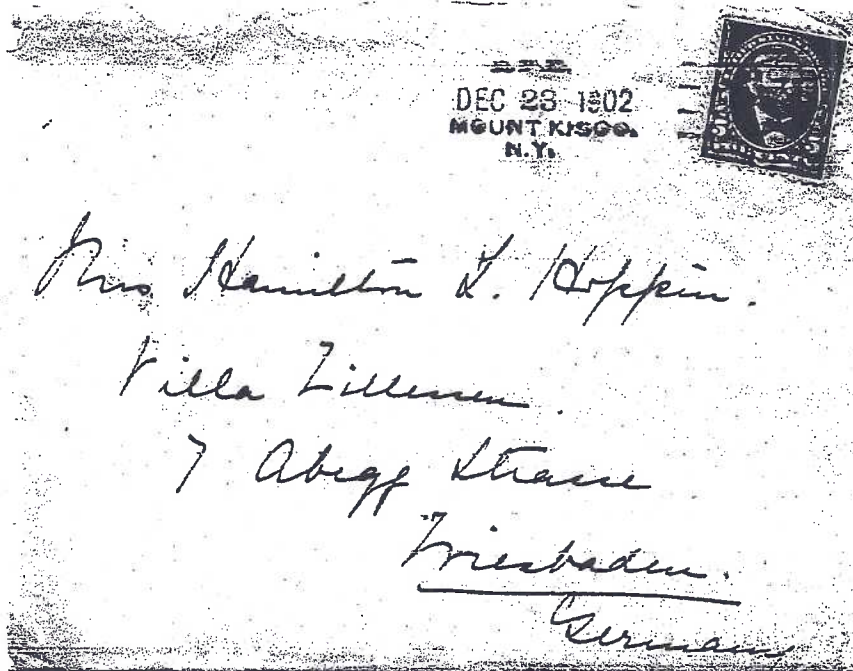 DEC 23 1902
MOUNT KISCO.
N.Y.
Mrs Hamilton L. Hoppin.
Villa
7 Abegg Strasse
Wiesbaden.
Germany